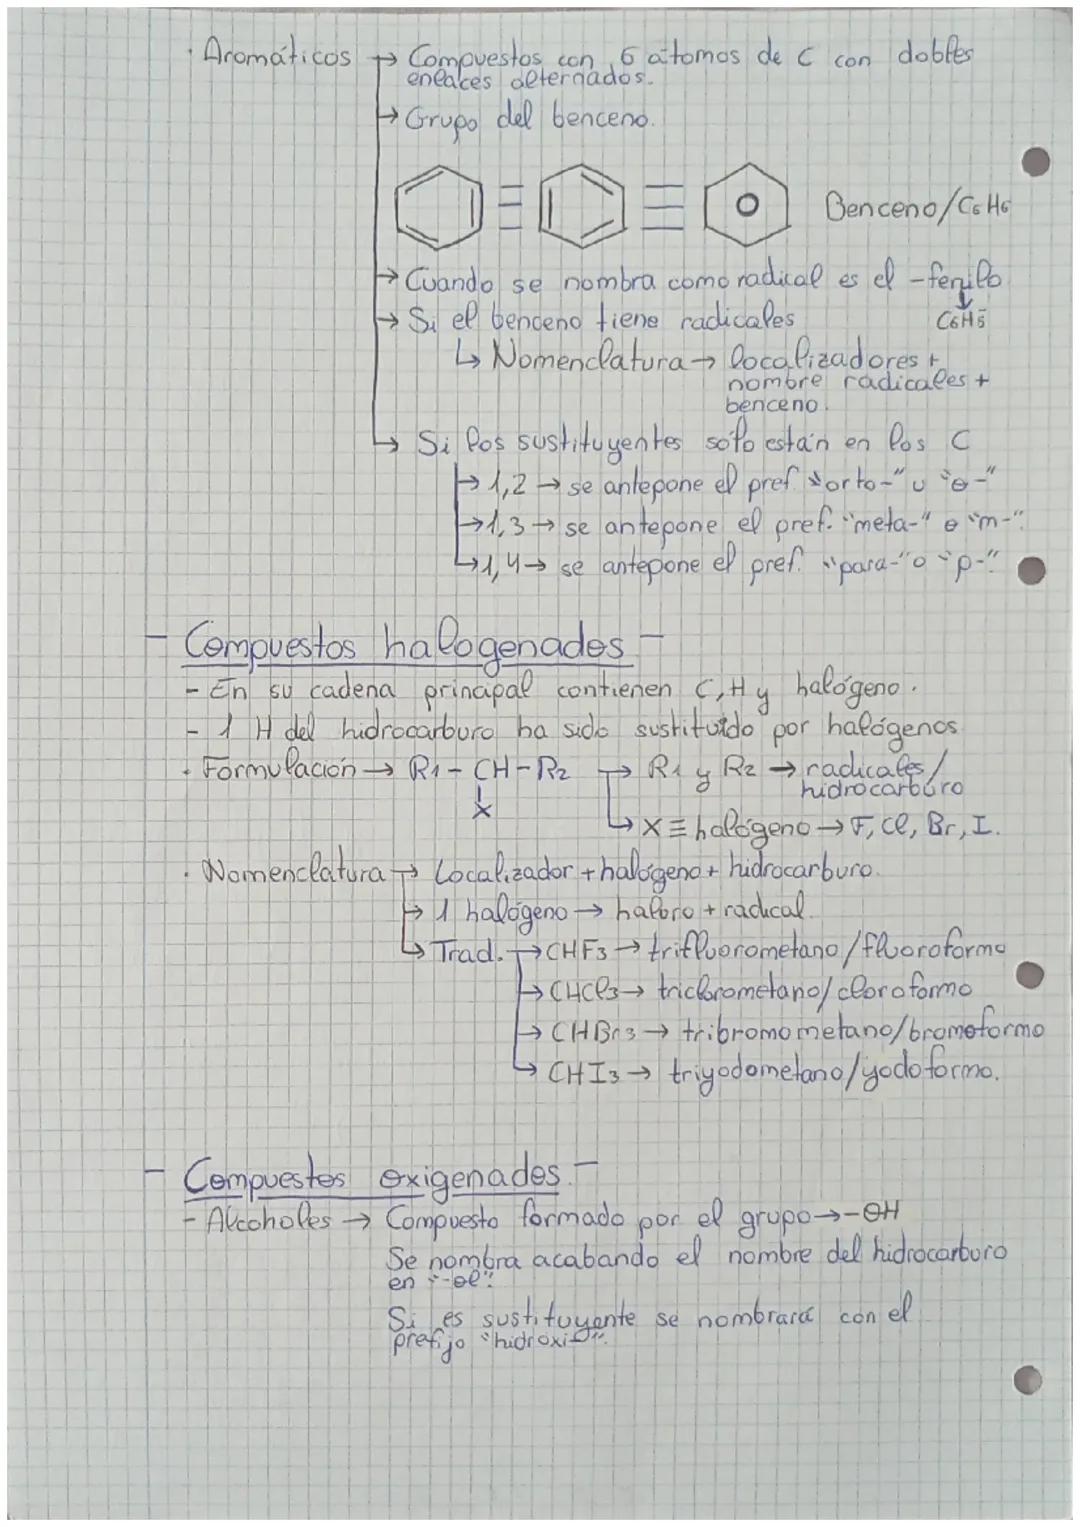 · Aromáticos → Compuestos con 6 átomos de C con dobles
enlaces alternados.
→ Grupo del benceno.
Benceno/C6H6
→ Cuando se nombra como radical es el -fenilo
↓
→ Si el benceno tiene radicales C6H5-
↳ Nomenclatura → localizadores +
nombre radicales +
benceno.
→ Si los sustituyentes sólo están en los C
→ 1,2 → se antepone el pref "orto-" u "o-"
→ 1,3 → se antepone el pref. "meta-" o "m-".
→ 1,4 → se antepone el pref. "para-" o "p-".
- Compuestos halogenados -
- En su cadena principal contienen C, H y halógeno.
- 1 H del hidrocarburo ha sido sustituido por halógenos
· Formulación → R1 - CH - R2 → R1 y R2 → radicales/
hidrocarburo
X ↳ X ≡ halógeno → F, Cl, Br, I.
· Nomenclatura → Localizador + halógeno + hidrocarburo.
→ 1 halógeno → haluro + radical.
↳ Trad. → CHF3 → trifluorometano/fluoroformo
→ CHCl3 → triclorometano/cloroformo
→ CHBr3 → tribromometano/bromoformo
↳ CHI3 → triyodometano/yodoformo.
- Compuestos oxigenados. -
- Alcoholes → Compuesto formado por el grupo → -OH
Se nombra acabando el nombre del hidrocarburo
en "-ol".
Si es sustituyente se nombrará con el
prefijo "hidroxi-".